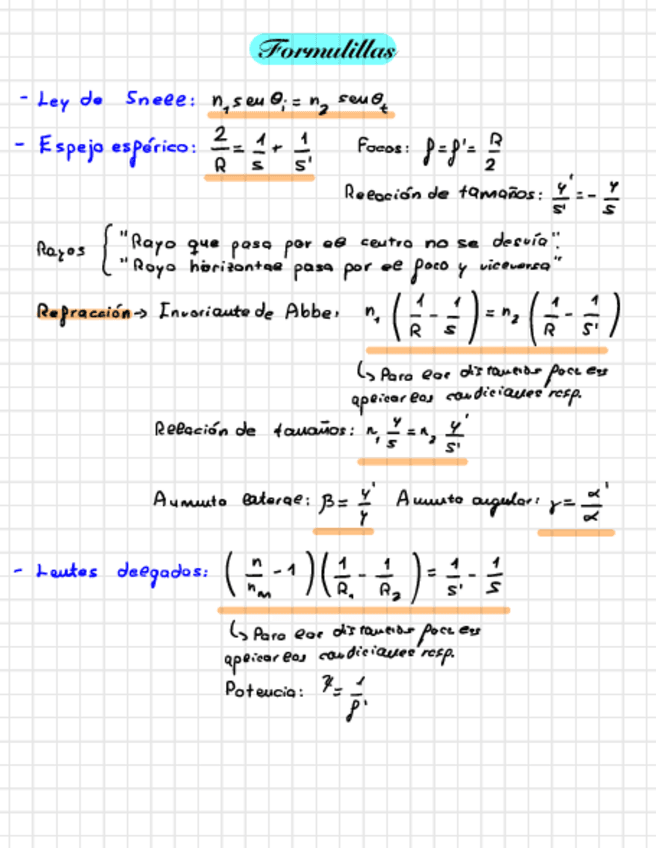 Formulillas
- Ley de Snell: n₁ sen θᵢ = n₂ sen θₜ
- Espejo esférico: 2/R = 1/s + 1/s' Focos: f = f' = R/2
Relación de tamaños: y'/s' = - y/s
Rayos { "Rayo que pasa por el centro no se desvía".
"Rayo horizontal pasa por el foco y viceversa"
Refracción → Invariante de Abbe: n₁ (1/R - 1/s) = n₂ (1/R - 1/s')
↳ Para las distancias focales
aplicar las condiciones resp.
Relación de tamaños: n₁ y/s = n₂ y'/s'
Aumento lateral: β = y'/y Aumento angular: γ = α'/α
- Lentes delgadas: (n/nₘ - 1) (1/R₁ - 1/R₂) = 1/s' - 1/s
↳ Para las distancias focales
aplicar las condiciones resp.
Potencia: = 1/f'